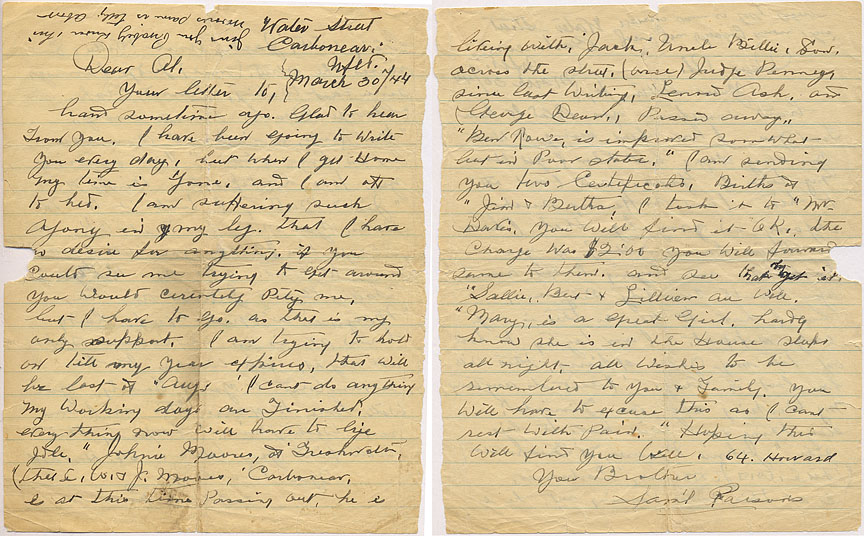 Water Street
Carbonear,
Nfld.
March 30/44
Dear Al.
Your letter to,
hand sometime ago. Glad to hear
From you. I have been going to write
you every day, but when I get Home
my time is gone, and I am off
to bed. I am suffering such
Agony in my leg. that I have
no desire for anything. if you
could see me trying to get around
you would certently Pity me,
but I have to go. as this is my
only support. I am trying to hold
on till my year expires, that will
be last of "Augt" I cant do anything
My Working days are Finished,
everything now will have to lye
Idle. "Johnie Moores, of Freshwater,
(that is, W & J. Moores,' Carbonear,
is at this time Passing out, he is
living with, Jack, Uncle Billie, Son.
across the street, (over) Judge Penney,
since last Writing, Lenord Ash. and
George Dean, Passed away,
"Ben Rowe, is improved somwhat
but in Poor state." I am sending
you two Certificats, Births of
"Jim & Bertha" I took it to "Mr.
you will find it OK., the
Charge Was $2.00 you will forward
same to them. and see that they get it.
"Sallie, Bert & Lillian are Well.
"Mary, is a great Girl, hardly
know she is in the House sleeps
all night, all Wishes to be
remembered to you & Family. you
Will have to excuse this as I cant
rest With Pain. "Hoping this
Will find you Well. 64. Howard
Your Brother
Saml Parsons